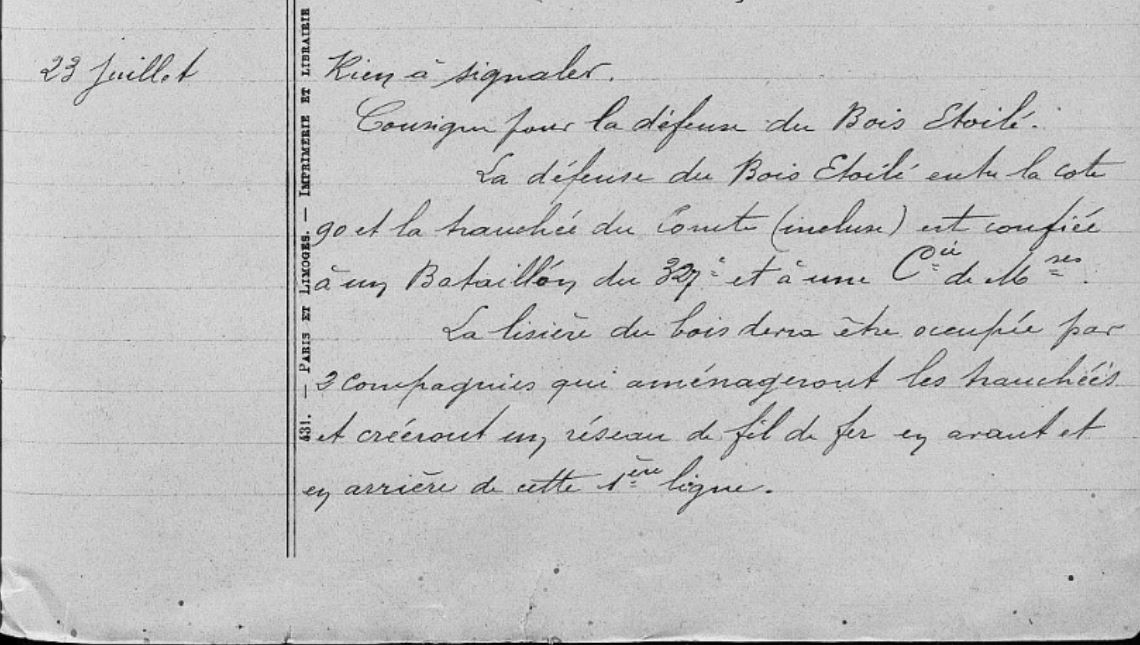 23 Juillet
Rien à signaler.
Consigne pour la défense du Bois Etoilé.
La défense du Bois Etoilé entre la cote
90 et la tranchée du Comte (incluse) est confiée
à un Bataillon du 327e et à une Cie de Mses.
La lisière du bois devra être occupée par
2 Compagnies qui aménageront les tranchées
et créeront un réseau de fil de fer en avant et
en arrière de cette 1ère ligne.
431. — PARIS ET LIMOGES. — IMPRIMERIE ET LIBRAIRIE